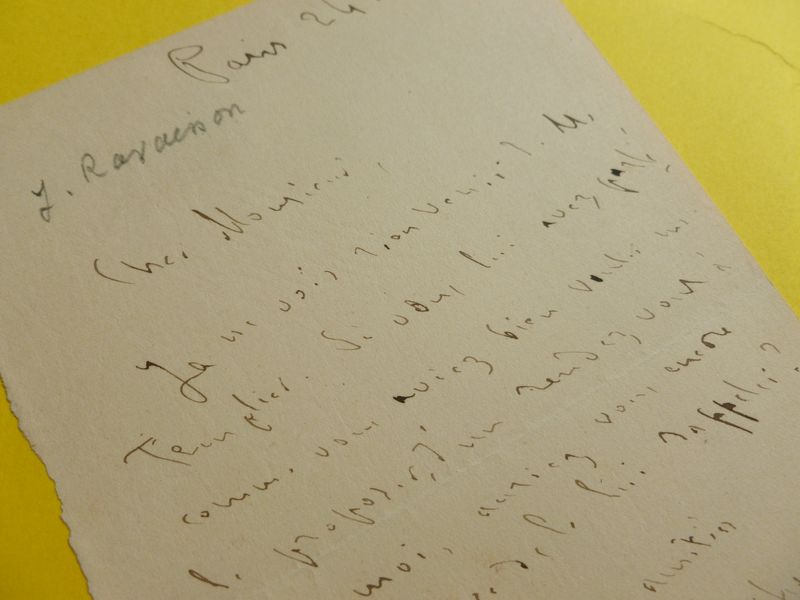 Paris 24
F. Ravaisson
Cher Monsieur,
Je ne vois rien venir de M.
Templier. Si vous lui avez parlé,
comme vous aviez bien voulu me
le proposer, un rendez vous à
moi, auriez vous encore
de le lui rappeler?
amitiés